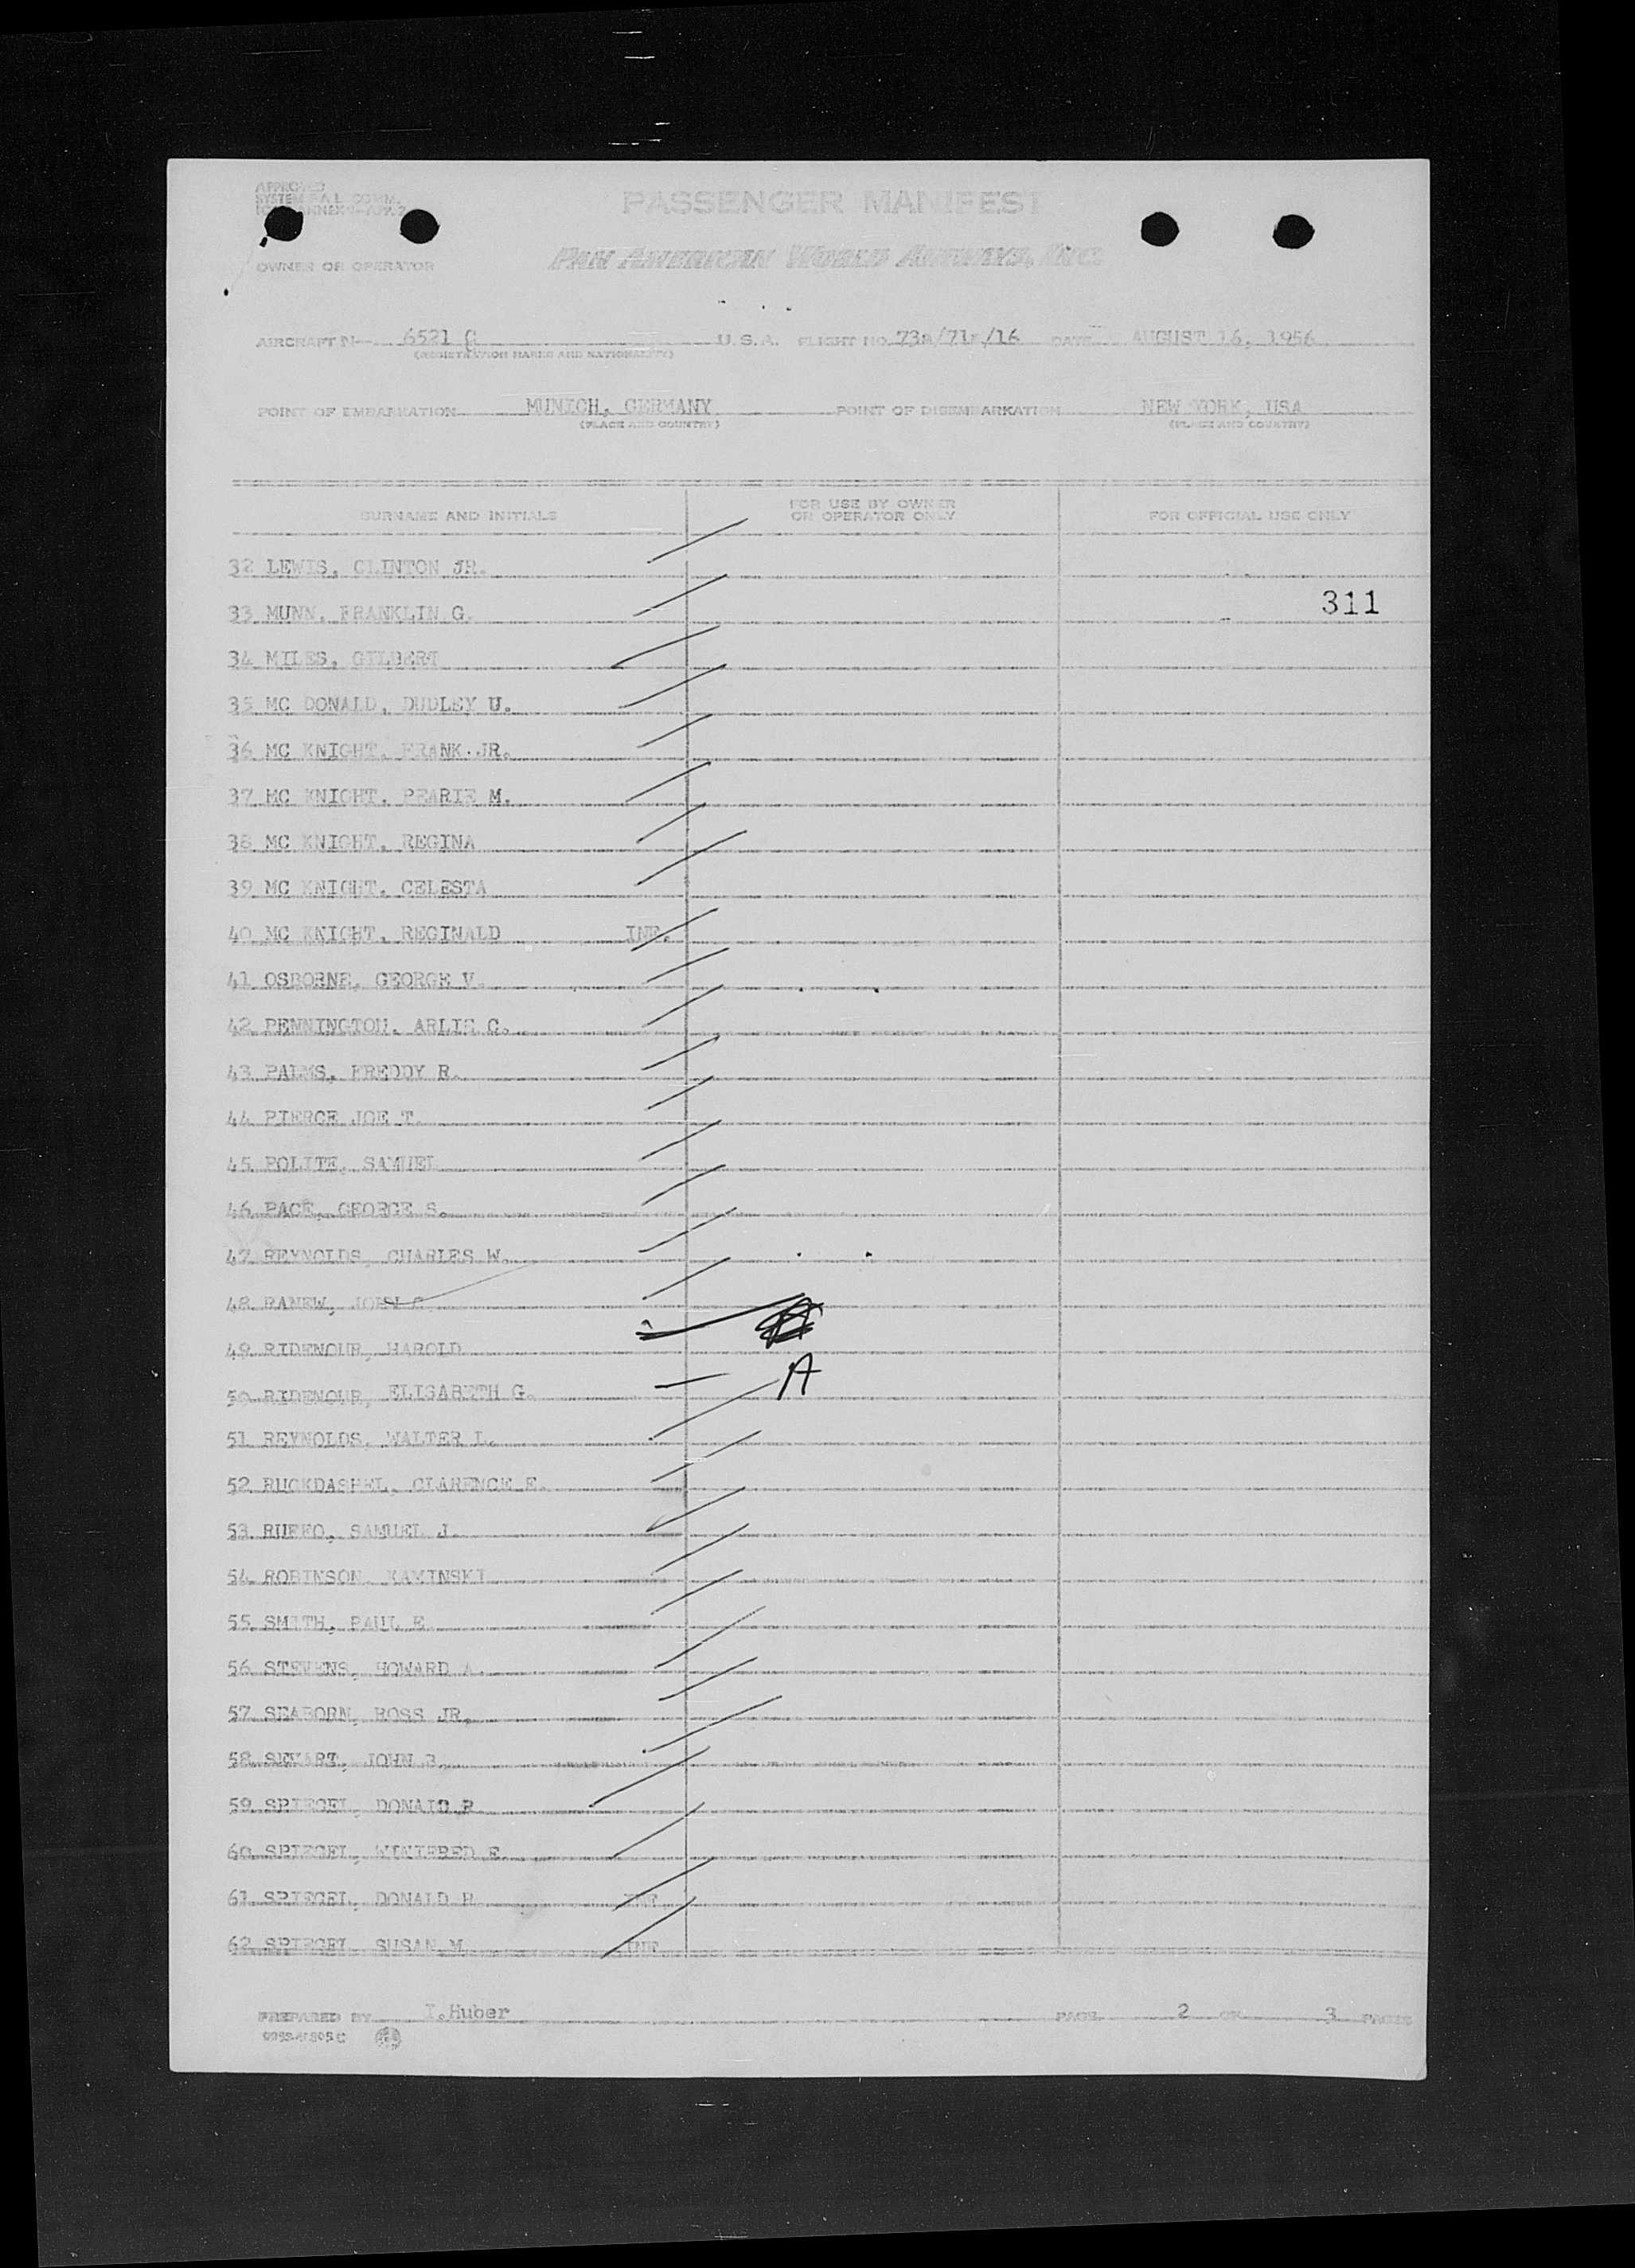 APPROVED
SYSTEM F.A.L. COMM.
ANNEX 9-APP. 2
PASSENGER MANIFEST
PAN AMERICAN WORLD AIRWAYS, INC.
OWNER OR OPERATOR
AIRCRAFT N- 6521 C U.S.A. FLIGHT NO. DATE AUGUST 16, 1956
(REGISTRATION MARKS AND NATIONALITY)
POINT OF EMBARKATION MUNICH, GERMANY POINT OF DISEMBARKATION NEW YORK, USA
(PLACE AND COUNTRY) (PLACE AND COUNTRY)
SURNAME AND INITIALS FOR USE BY OWNER OR OPERATOR ONLY FOR OFFICIAL USE ONLY
32 LEWIS, CLINTON JR.
33 MUNN, FRANKLIN G. 311
34 MILES, GILBERT
35 MC DONALD, DUDLEY U.
36 MC KNIGHT, FRANK JR.
37 MC KNIGHT, PEARIE M.
38 MC KNIGHT, REGINA
39 MC KNIGHT, CELESTA
40 MC KNIGHT, REGINALD INF.
41 OSBORNE, GEORGE V.
42 PENNINGTON, ARLIE C.
43 PALMS, FREDDY R.
44 PIERCE JOE T.
45 POLITE, SAMUEL
46 PACE, GEORGE S.
47 REYNOLDS, CHARLES W.
48 RANEW, JOHN
49 RIDENOUR, HAROLD
50 RIDENOUR, ELISABETH G. A
51 REYNOLDS, WALTER L.
52 RUCKDASHEL, CLARENCE E.
53 RUFFO, SAMUEL J.
54 ROBINSON, KAMINSKI
55 SMITH, PAUL E.
56 STEVENS, HOWARD A.
57 SEABORN, ROSS JR.
58 JOHN
59 SPIEGEL, DONALD R
60 SPIEGEL, WINIFRED E.
61 SPIEGEL, DONALD H INF
62 SPIEGEL, SUSAN M INF
PREPARED BY I.Huber PAGE 2 OF 3 PAGES